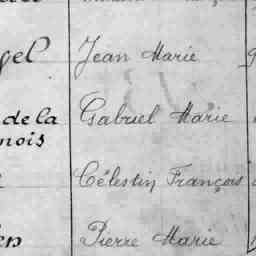 gel Jean Marie
de la Gabriel Marie
nois
Célestin François
en Pierre Marie